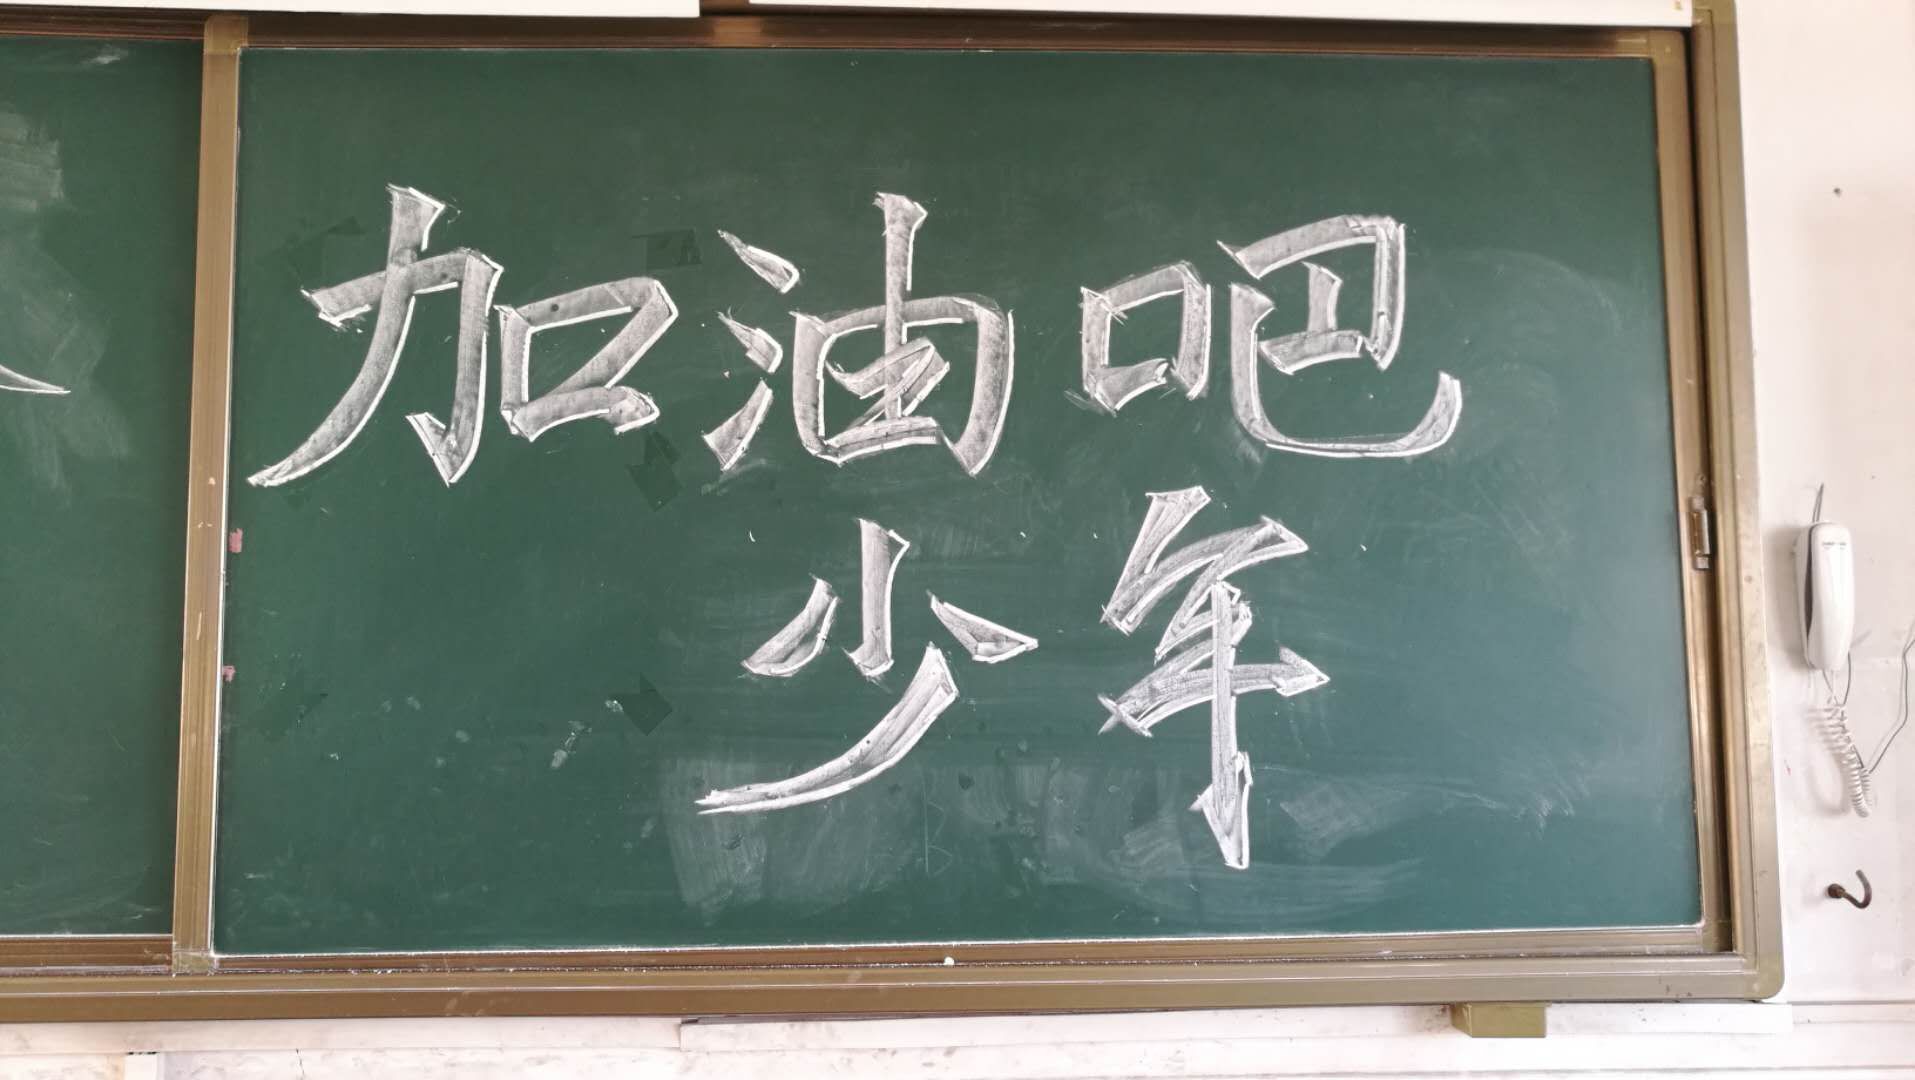 加油吧
少年